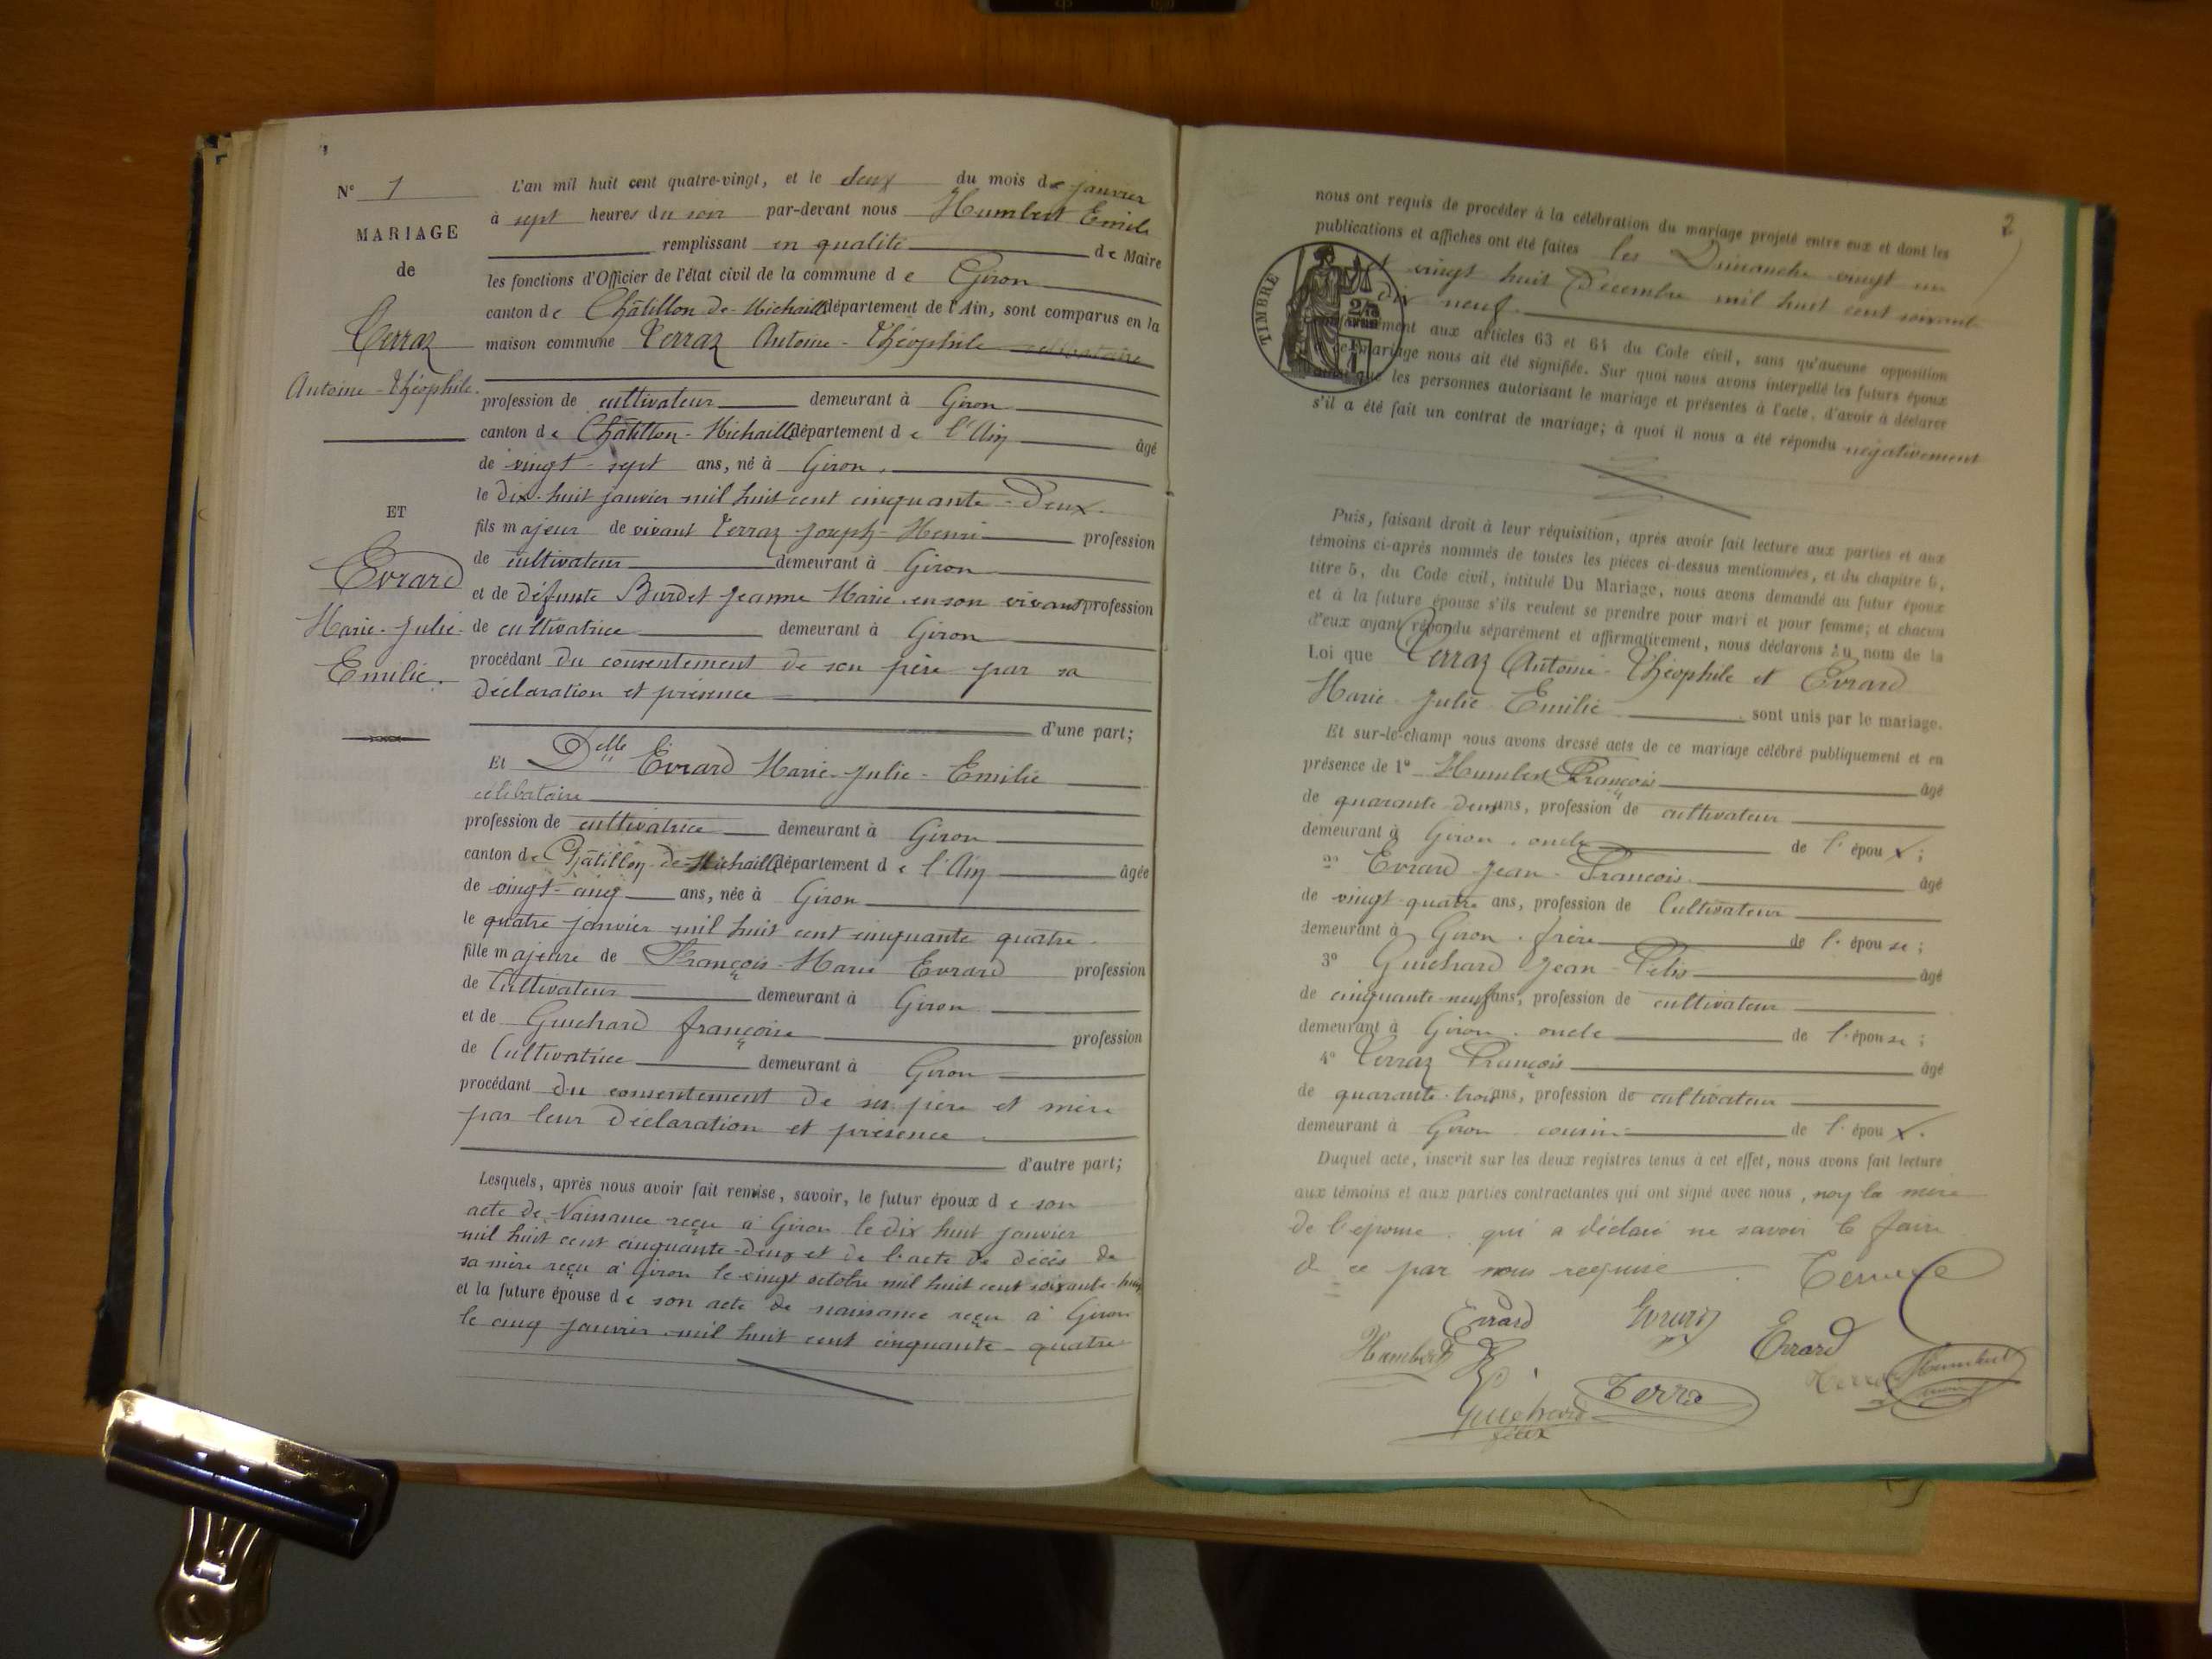 N° 1
MARIAGE
de
Terraz
Antoine-Théophile.
ET
Evrard
Marie-Julie-
Emilie.
L'an mil huit cent quatre-vingt, et le deux du mois de janvier
à sept heures du soir par-devant nous Humbert Emile
remplissant en qualité de Maire
les fonctions d'Officier de l'état civil de la commune de Giron
canton de Châtillon-de-Michaille département de l'Ain, sont comparus en la
maison commune Terraz Antoine-Théophile célibataire
profession de cultivateur demeurant à Giron
canton de Châtillon-Michaille département de l'Ain âgé
de vingt-sept ans, né à Giron.
le dix-huit janvier mil huit cent cinquante-deux.
fils majeur de vivant Terraz Joseph-Henri profession
de cultivateur demeurant à Giron
et de défunte Burdet Jeanne Marie en son vivant profession
de cultivatrice demeurant à Giron
procédant du consentement de son père par sa
déclaration et présence
d'une part;
Et Delle Evrard Marie-Julie-Emilie
célibataire
profession de cultivatrice demeurant à Giron
canton de Châtillon-de-Michaille département de l'Ain âgée
de vingt-cinq ans, née à Giron
le quatre janvier mil huit cent cinquante quatre.
fille majeure de François-Marie Evrard profession
de Cultivateur demeurant à Giron
et de Guichard françoise profession
de Cultivatrice demeurant à Giron
procédant du consentement de ses père et mère
par leur déclaration et présence
d'autre part;
Lesquels, après nous avoir fait remise, savoir, le futur époux de son
acte de Naissance reçu à Giron le dix huit janvier
mil huit cent cinquante-deux et de l'acte de décès de
sa mère reçu à Giron le vingt octobre mil huit cent soixante-huit
et la future épouse de son acte de naissance reçu à Giron
le cinq janvier mil huit cent cinquante-quatre
2
nous ont requis de procéder à la célébration du mariage projeté entre eux et dont les
publications et affiches ont été faites les Dimanche vingt un
et vingt huit Décembre mil huit cent soixante
dix neuf.
TIMBRE
conformément aux articles 63 et 64 du Code civil, sans qu'aucune opposition
à ce mariage nous ait été signifiée. Sur quoi nous avons interpellé les futurs époux
ainsi que les personnes autorisant le mariage et présentes à l'acte, d'avoir à déclarer
s'il a été fait un contrat de mariage; à quoi il nous a été répondu négativement
Puis, faisant droit à leur réquisition, après avoir fait lecture aux parties et aux
témoins ci-après nommés de toutes les pièces ci-dessus mentionnées, et du chapitre 6,
titre 5, du Code civil, intitulé Du Mariage, nous avons demandé au futur époux
et à la future épouse s'ils veulent se prendre pour mari et pour femme; et chacun
d'eux ayant répondu séparément et affirmativement, nous déclarons au nom de la
Loi que Terraz Antoine-Théophile et Evrard
Marie-Julie-Emilie sont unis par le mariage.
Et sur-le-champ nous avons dressé acte de ce mariage célébré publiquement et en
présence de 1° Humbert François âgé
de quarante deux ans, profession de cultivateur
demeurant à Giron, oncle de l'époux;
2° Evrard Jean-François âgé
de vingt-quatre ans, profession de Cultivateur
demeurant à Giron, frère de l'épouse;
3° Guichard Jean-Félix âgé
de cinquante-neuf ans, profession de cultivateur
demeurant à Giron, oncle de l'épouse;
4° Terraz François âgé
de quarante-trois ans, profession de cultivateur
demeurant à Giron cousin de l'époux.
Duquel acte, inscrit sur les deux registres tenus à cet effet, nous avons fait lecture
aux témoins et aux parties contractantes qui ont signé avec nous, non la mère
de l'épouse qui a déclaré ne savoir le faire
de ce par nous requise
Evrard
Evrard
Humbert
Humbert
maire
Guichard
félix